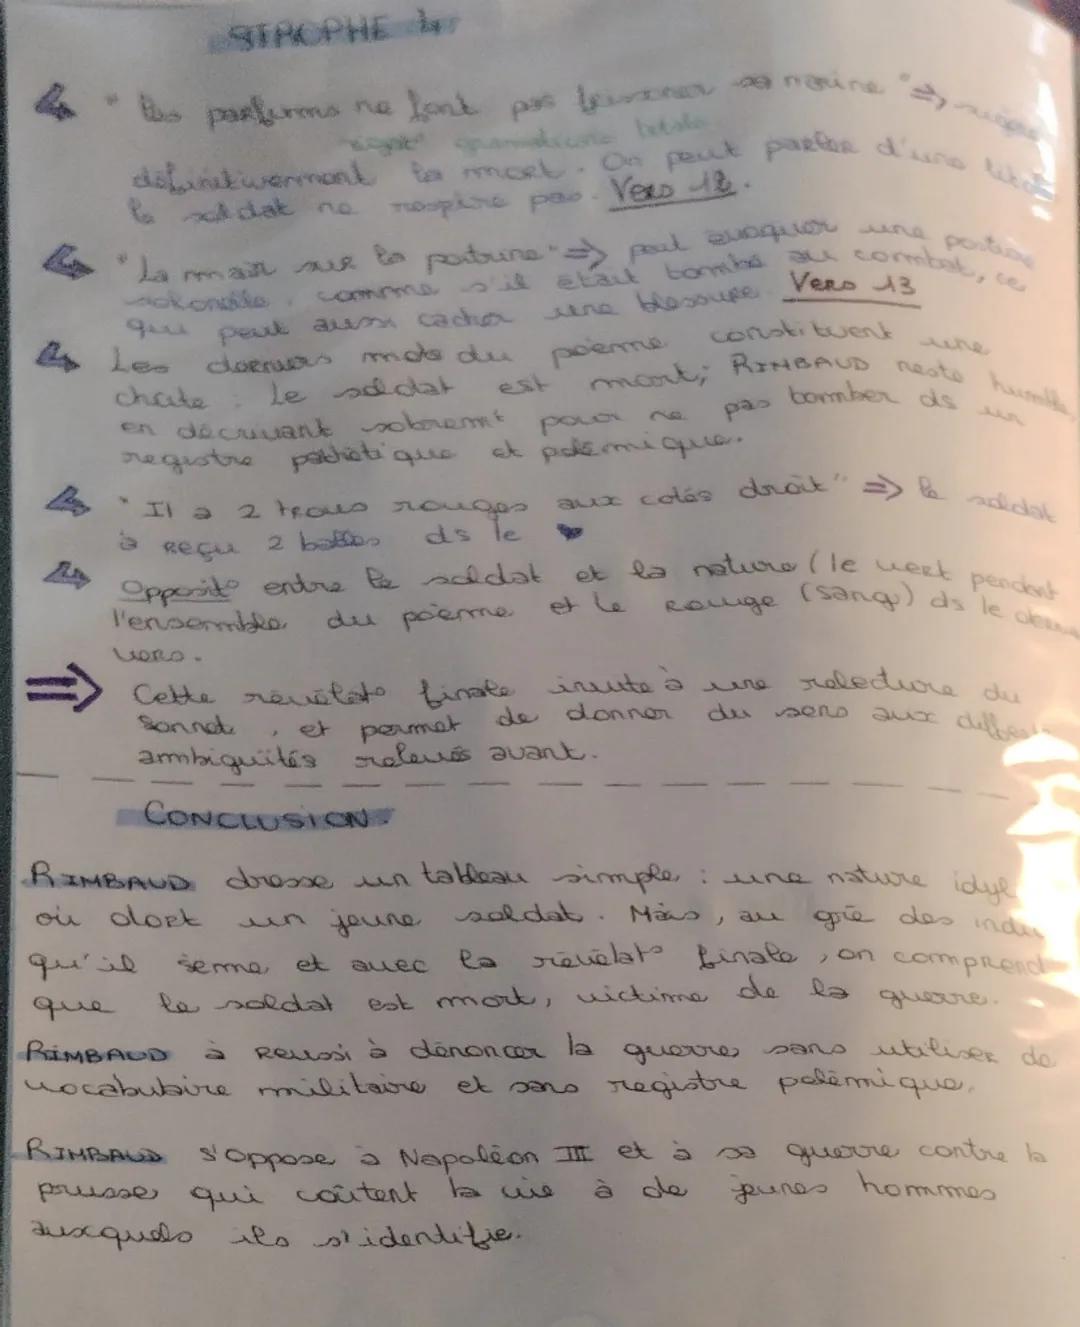 STROPHE 4
"Les parfums ne font pas frissoner sa narine" ⇒
négat° grammaticale totale
définitivement la mort. On peut parler d'une
le soldat ne respire pas. Vers 12.
"La main sur la poitrine" ⇒ peut évoquer une
comme s'il était tombé au combat, ce
qui peut aussi cacher une blessure. Vers 13
Les derniers mots du poème constituent une
chute : Le soldat est mort; RIMBAUD reste humble,
en décrivant sobremt pour ne pas tomber ds un
registre pathétique et polémique.
"Il a 2 trous rouges aux cotés droit" ⇒ le soldat
à reçu 2 balles ds le
Opposit° entre le soldat et la nature (le vert pendant
l'ensemble du poème et le Rouge (sang) ds le
vers.
⇒ Cette révélat° finale invite à une relecture du
Sonnet, et permet de donner du sens aux
ambiguïtés relevés avant.
CONCLUSION.
RIMBAUD dresse un tableau simple : une nature
où dort un jeune soldat. Mais, au gré des
qu'il seme et avec la révélat° finale, on comprend
que le soldat est mort, victime de la guerre.
RIMBAUD à reussi à dénoncer la guerre sans utiliser de
vocabulaire militaire et sans registre polémique.
RIMBAUD s'oppose à Napoléon III et à sa guerre contre la
prusse qui coûtent la vie à de jeunes hommes
auxquels ils s'identifie.